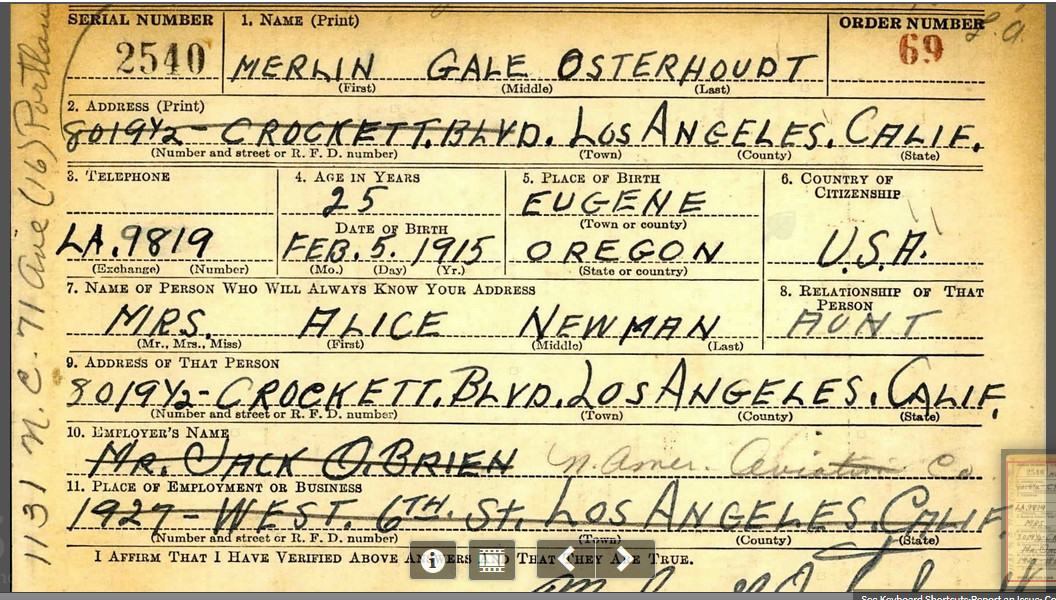 SERIAL NUMBER 1. NAME (Print) ORDER NUMBER
2540 MERLIN GALE OSTERHOUDT 69
(First) (Middle) (Last)
2. ADDRESS (Print)
8019½ - CROCKETT. BLVD. LOS ANGELES. CALIF.
(Number and street or R. F. D. number) (Town) (County) (State)
3. TELEPHONE 4. AGE IN YEARS 5. PLACE OF BIRTH 6. COUNTRY OF
CITIZENSHIP
25 EUGENE
DATE OF BIRTH (Town or county)
LA. 9819 FEB. 5. 1915 OREGON U.S.A.
(Exchange) (Number) (Mo.) (Day) (Yr.) (State or country)
7. NAME OF PERSON WHO WILL ALWAYS KNOW YOUR ADDRESS 8. RELATIONSHIP OF THAT
PERSON
MRS. ALICE NEWMAN AUNT
(Mr., Mrs., Miss) (First) (Middle) (Last)
9. ADDRESS OF THAT PERSON
8019½ - CROCKETT. BLVD. LOS ANGELES. CALIF.
(Number and street or R. F. D. number) (Town) (County) (State)
10. EMPLOYER'S NAME
MR. JACK O.BRIEN N. Amer. Aviation Co
11. PLACE OF EMPLOYMENT OR BUSINESS
1927 - WEST. 6TH. St. LOS ANGELES. CALIF
(Number and street or R. F. D. number) (Town) (County) (State)
I AFFIRM THAT I HAVE VERIFIED ABOVE ANSWERS AND THAT THEY ARE TRUE.
1131 N. E. 71 Ave (16) Portlan
L. A.